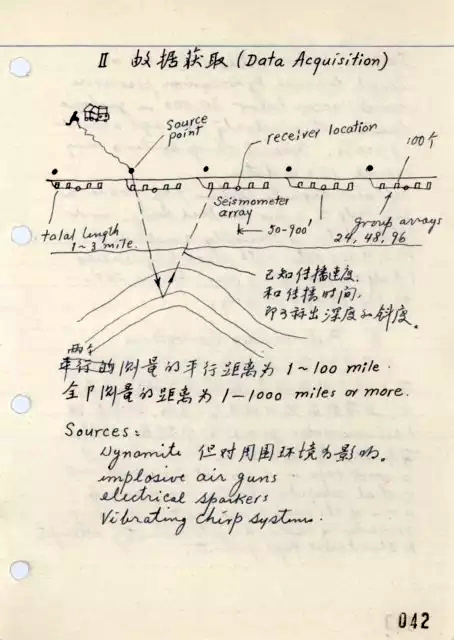 II 数据获取 (Data Acquisition)
Source point
receiver location
100个
Seismometer array
50-900'
group arrays
24, 48, 96
total length
1~3 mile.
已知传播速度,
和传播时间,
即可标出深度和斜度。
两个
平行的测量的平行距离为 1~100 mile.
全部测量的距离为 1—1000 miles or more.
Sources:
Dynamite 但对周围环境为影响。
implosive air guns
electrical sparkers
Vibrating chirp systems.
042